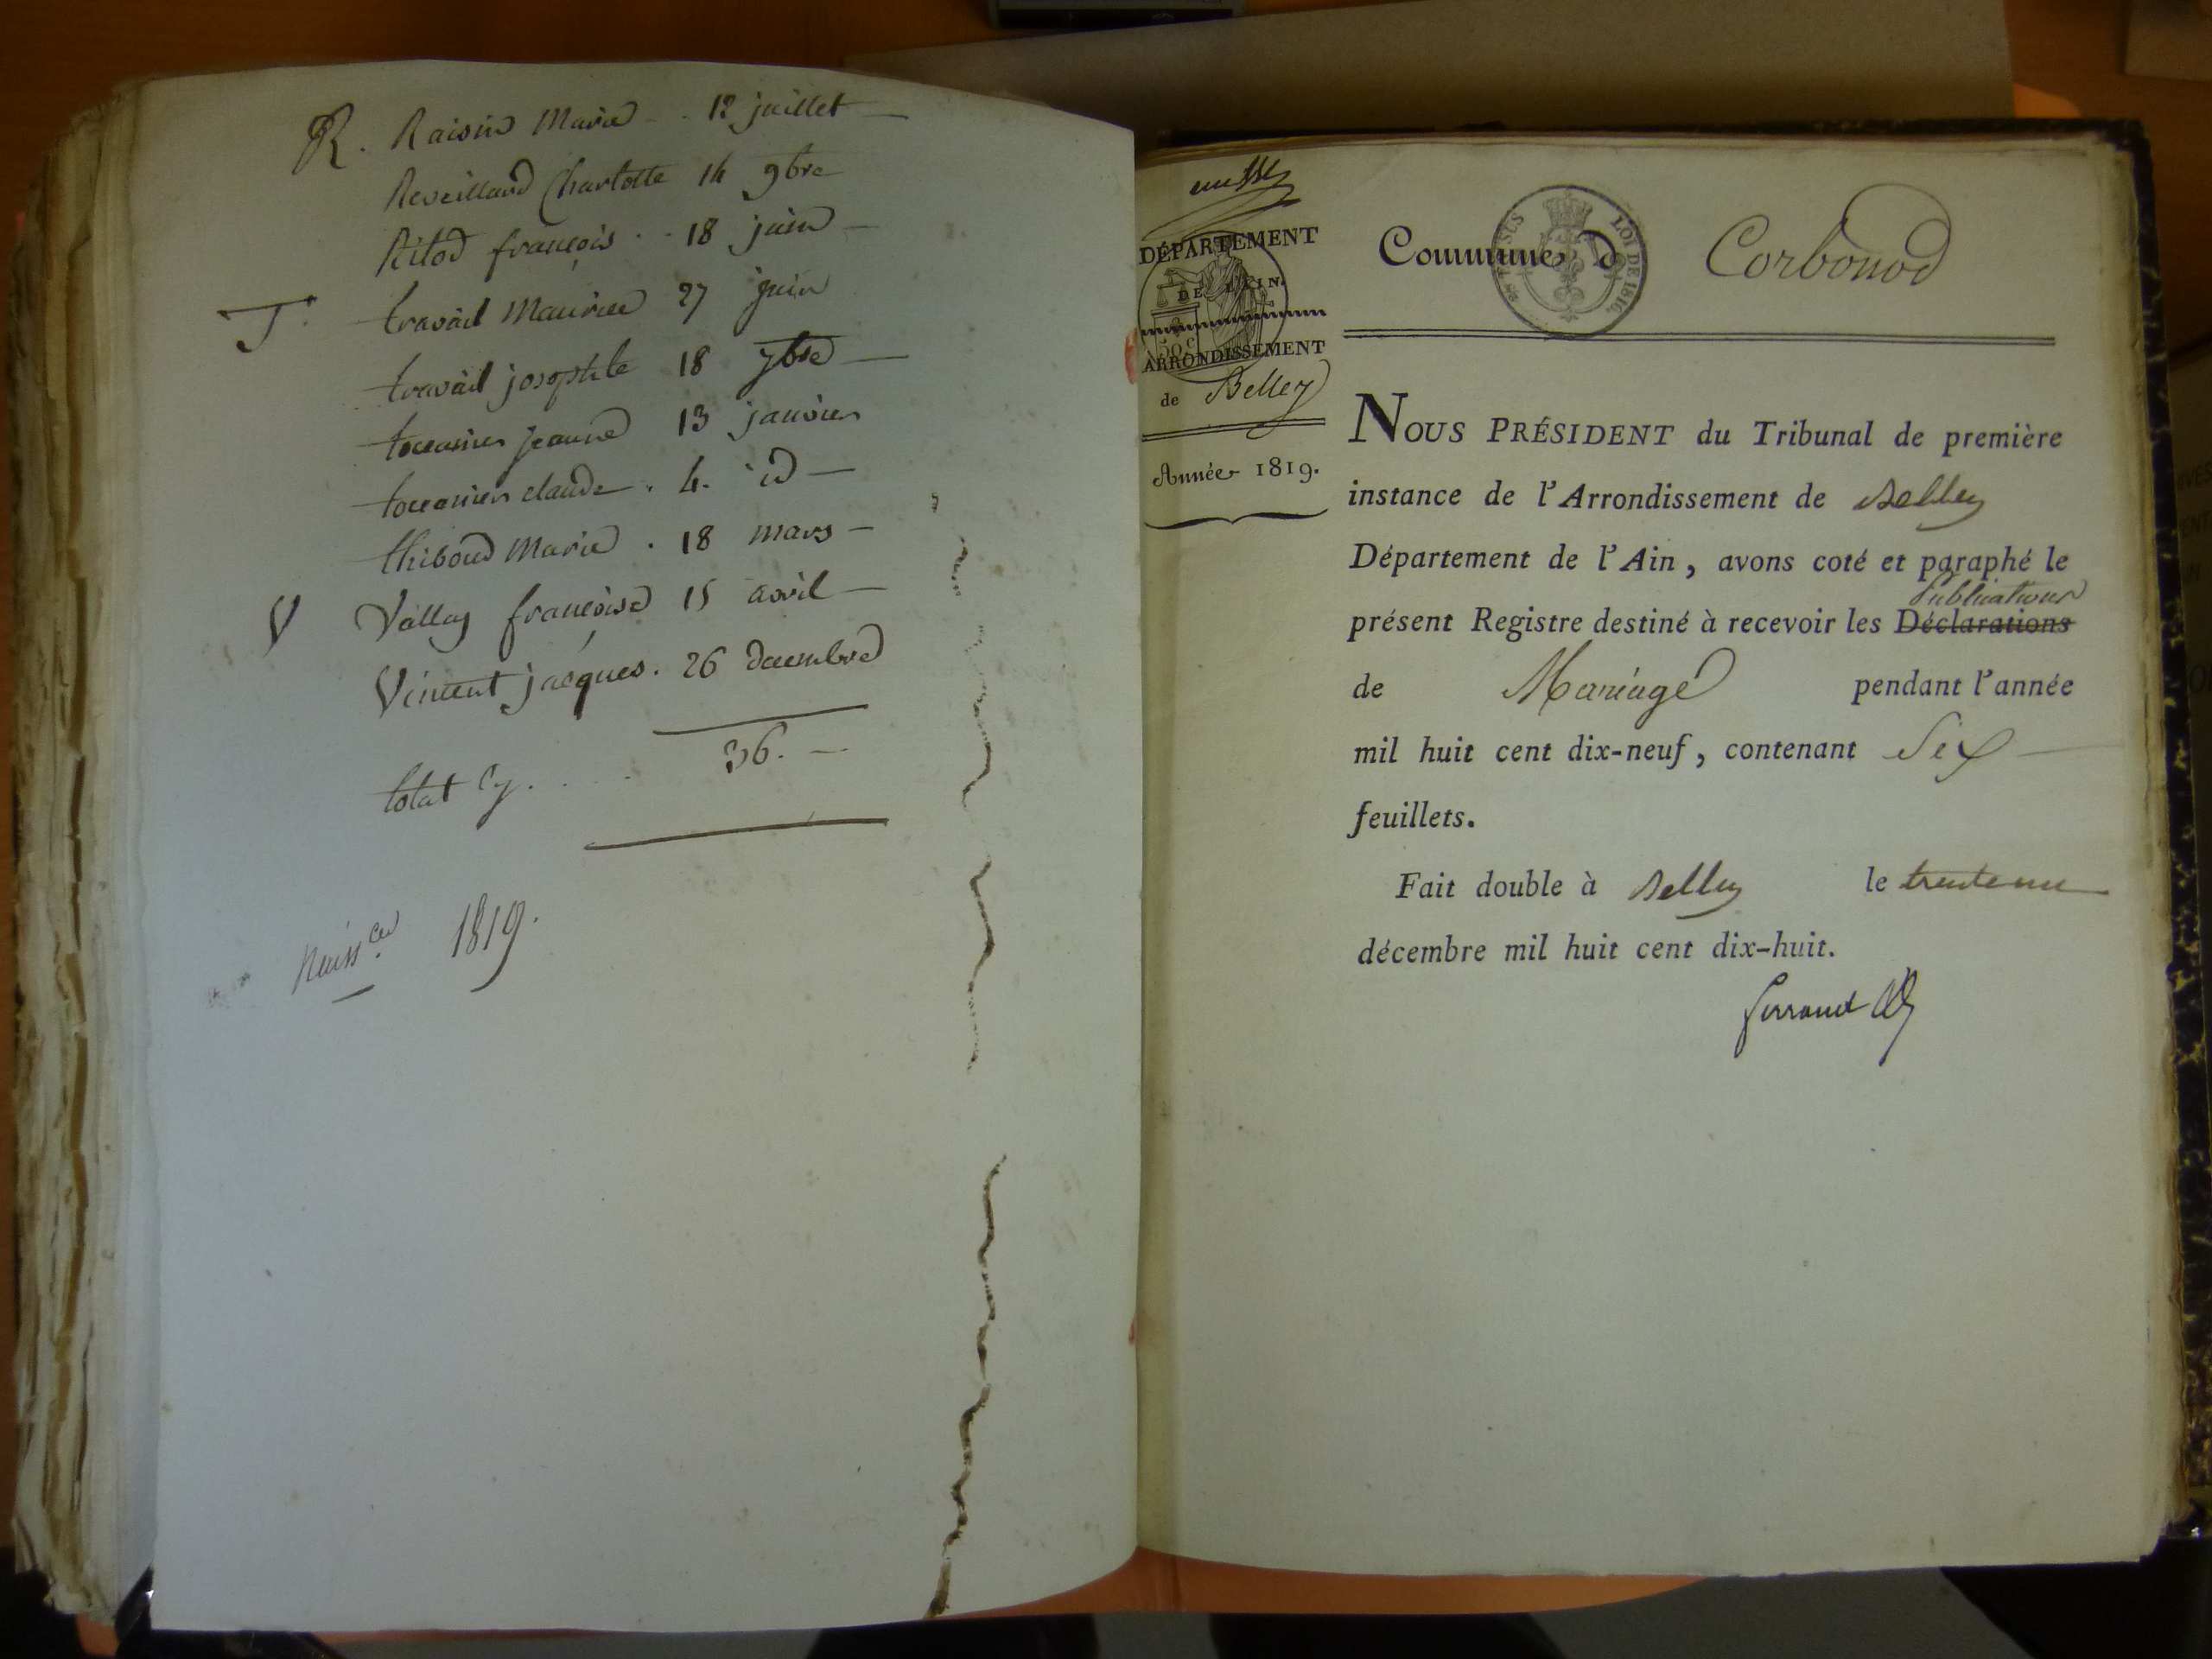 R. Raisin Marie . . 12 juillet —
Reveillard Charlotte 14 9bre
Ritod françois . . 18 juin —
T. travail Maurice 27 juin
travail josephte 18 7bre —
jeanne 13 janvier
claude . 4. id —
thiboud Marie . 18 mars —
V Vallay françoise 15 avril —
Vincent jacques . 26 decembre
total cy . . . . 36. —
Naiss.ces 1819.
DÉPARTEMENT
DE L'AIN.
50 c
ARRONDISSEMENT
de Belley
Année 1819.
Commune d Corbonod
LOI DE 1816.
NOUS PRÉSIDENT du Tribunal de première
instance de l'Arrondissement de Belley
Département de l'Ain, avons coté et paraphé le
Publications
présent Registre destiné à recevoir les Déclarations
de Mariage pendant l'année
mil huit cent dix-neuf, contenant Six —
feuillets.
Fait double à Belley le trente un
décembre mil huit cent dix-huit.